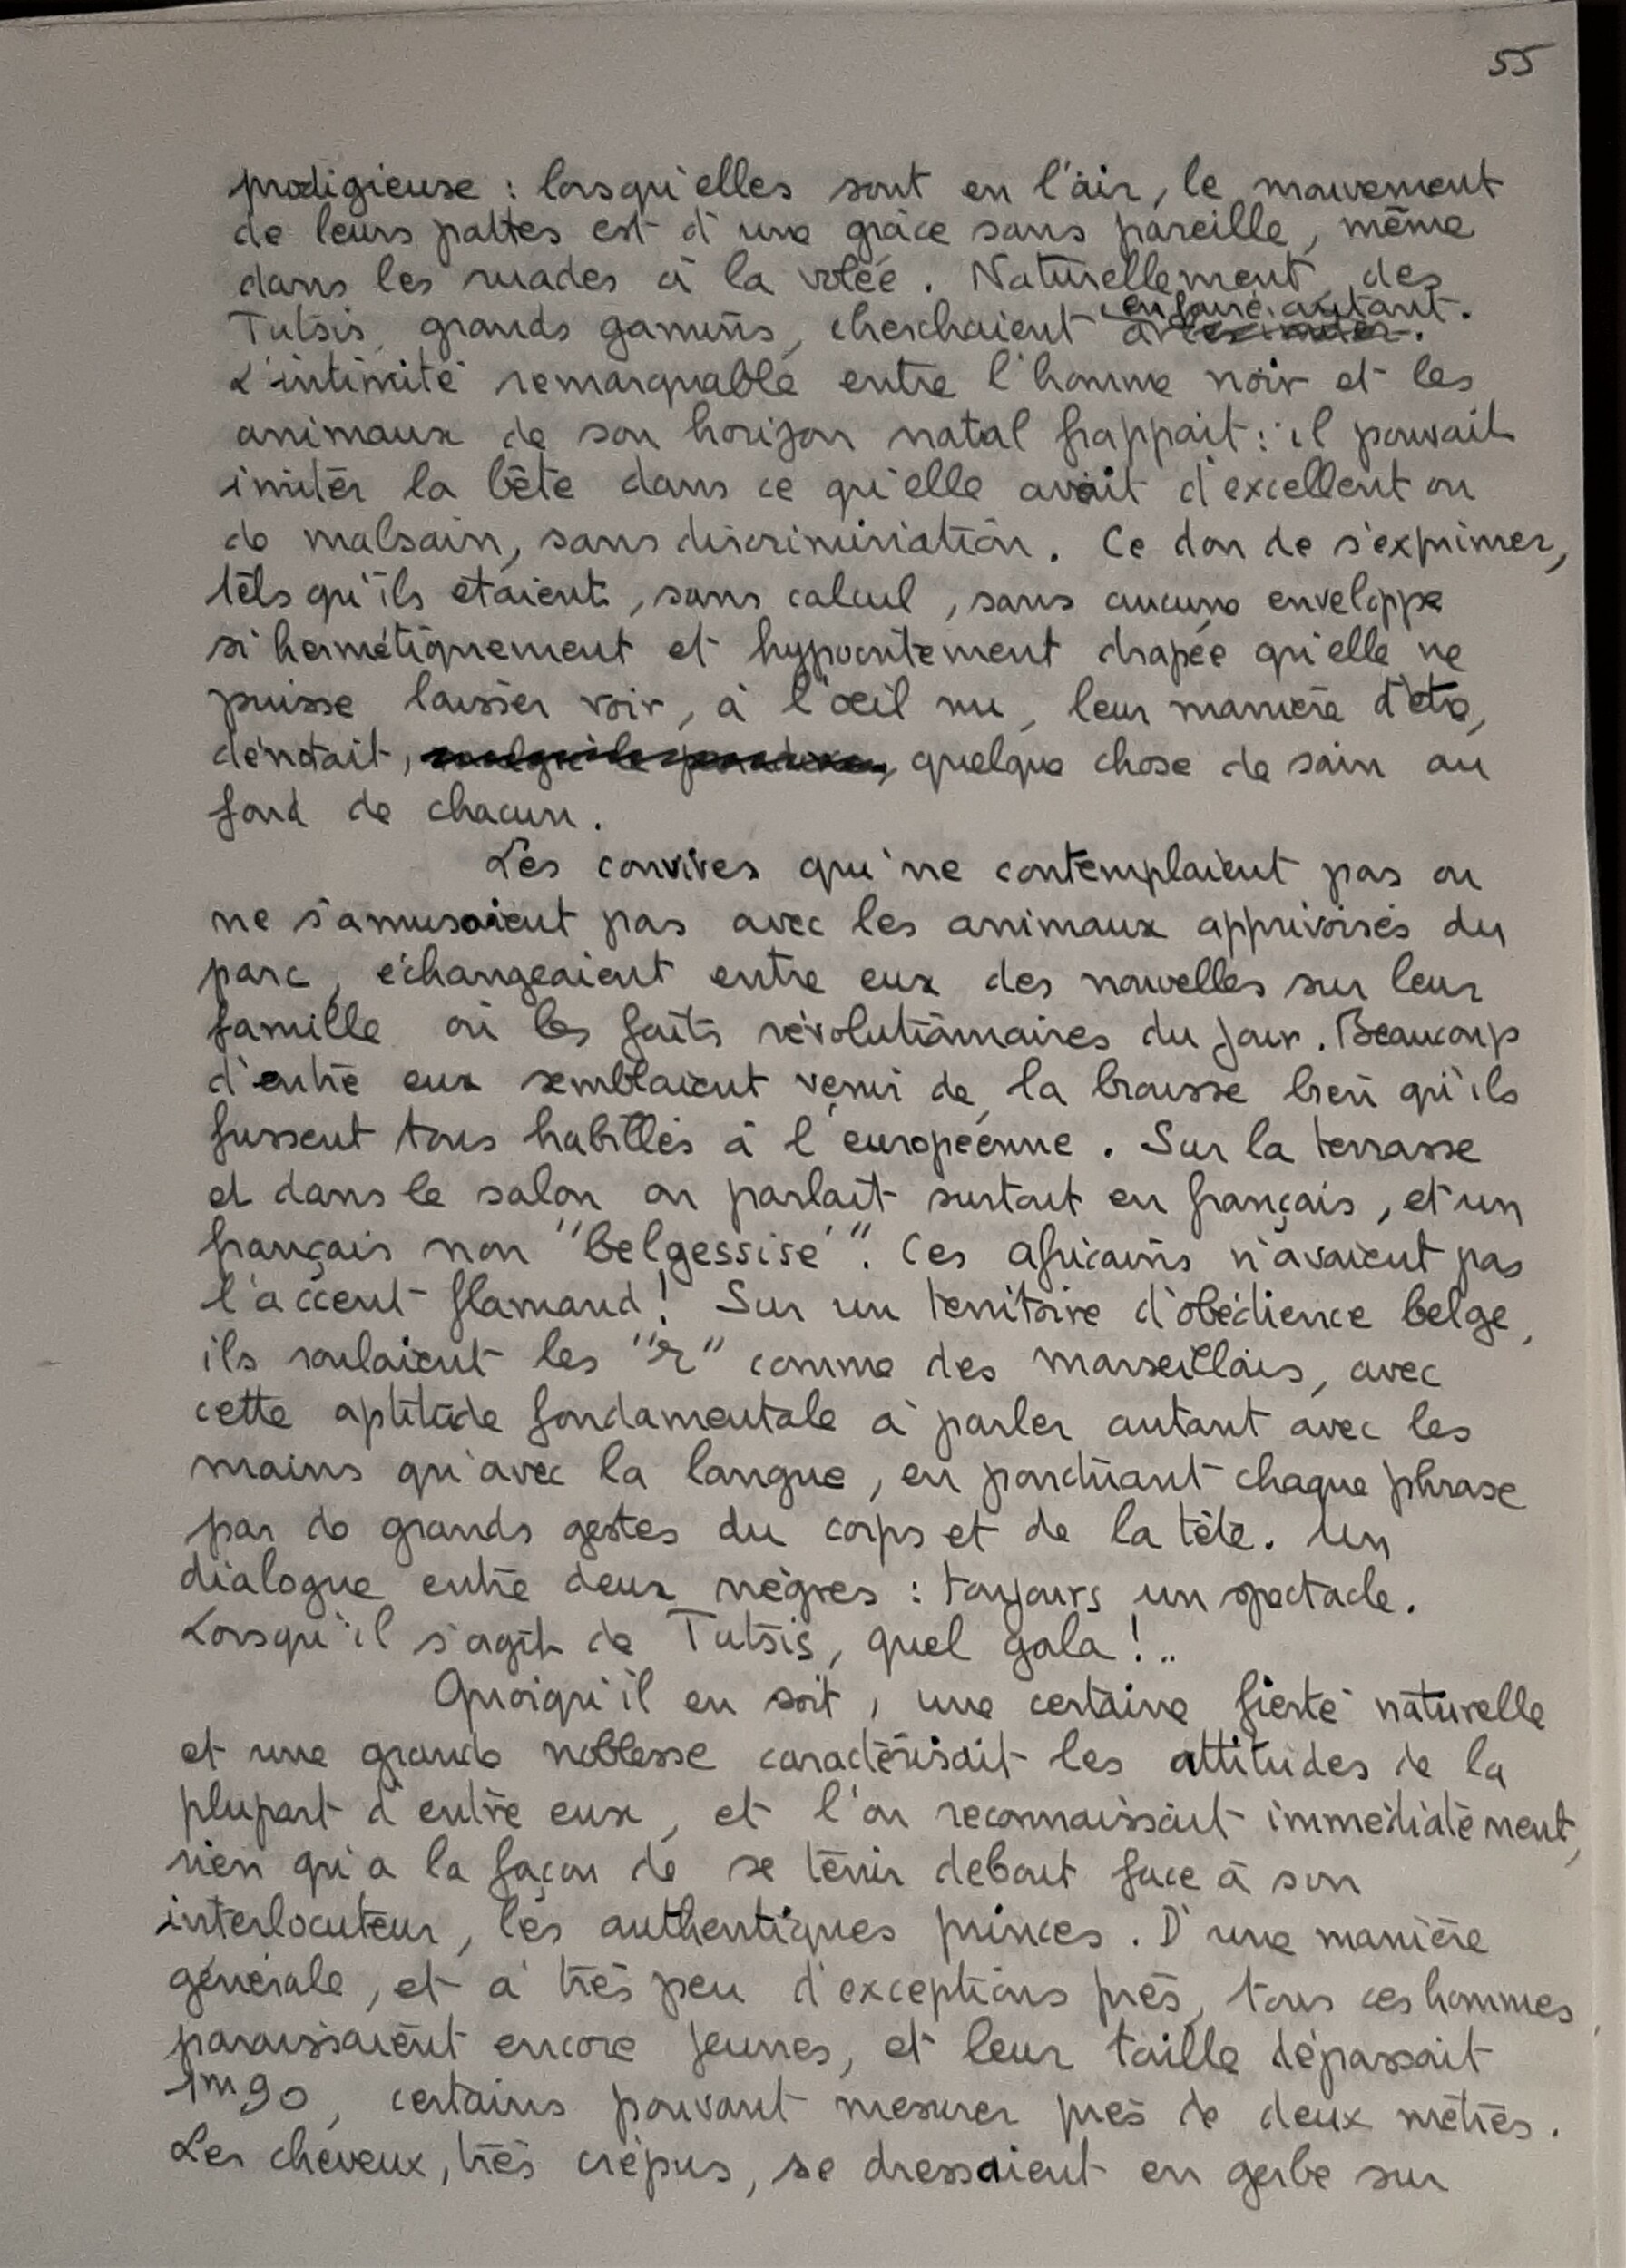 55
prodigieuse : lorsqu'elles sont en l'air, le mouvement
de leurs pattes est d'une grâce sans pareille, même
dans les ruades à la volée. Naturellement, des
Tutsis, grands gamins, cherchaient à en faire autant.
L'intimité remarquable entre l'homme noir et les
animaux de son horizon natal frappait : il pouvait
imiter la bête dans ce qu'elle avait d'excellent ou
de malsain, sans discriminiation. Ce don de s'exprimer,
tels qu'ils étaient, sans calcul, sans aucune enveloppe
si hermétiquement et hypocritement drapée qu'elle ne
puisse laisser voir, à l'œil nu, leur manière d'être,
dénotait, quelque chose de sain au
fond de chacun.
Les convives qui ne contemplaient pas ou
ne s'amusaient pas avec les animaux apprivoisés du
parc, échangeaient entre eux des nouvelles sur leur
famille ou les faits révolutionnaires du jour. Beaucoup
d'entre eux semblaient venir de la brousse bien qu'ils
fussent tous habillés à l'européenne. Sur la terrasse
et dans le salon on parlait surtout en français, et un
français non "belgessisé". Ces africains n'avaient pas
l'accent flamand ! Sur un territoire d'obédience belge,
ils roulaient les "r" comme des marseillais, avec
cette aptitude fondamentale à parler autant avec les
mains qu'avec la langue, en ponctuant chaque phrase
par de grands gestes du corps et de la tête. Un
dialogue entre deux nègres : toujours un spectacle.
Lorsqu'il s'agit de Tutsis, quel gala !..
Quoiqu'il en soit, une certaine fierté naturelle
et une grande noblesse caractérisait les attitudes de la
plupart d'entre eux, et l'on reconnaissait immédiatement,
rien qu'à la façon de se tenir debout face à son
interlocuteur, les authentiques princes. D'une manière
générale, et à très peu d'exceptions près, tous ces hommes
paraissaient encore jeunes, et leur taille dépassait
1m90, certains pouvant mesurer près de deux mètres.
Les cheveux, très crépus, se dressaient en gerbe sur